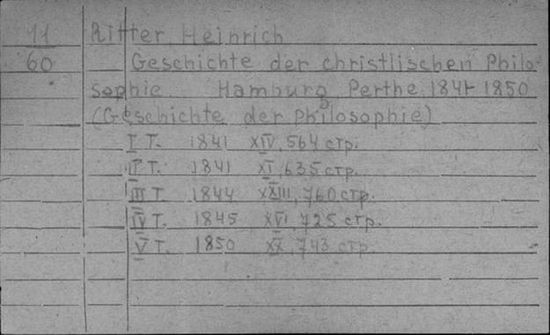 11 Ritter Heinrich
60 Geschichte der christlischen Philo-
sophie. Hamburg Perthe 1841-1850
(Geschichte der Philosophie)
I T. 1841 XIV, 564 стр.
II T. 1841 XI, 635 стр.
III T. 1844 XXIII, 760 стр.
IV T. 1845 XVI, 725 стр.
V T. 1850 XX, 743 стр.